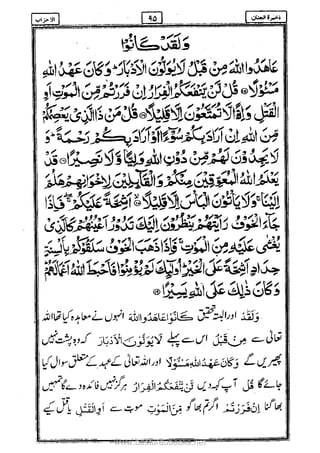 ذخیرۃ الجنان ۹۵ الاحزاب
وَلَقَدْ كَانُوْا
عَاهَدُوا اللهَ مِنْ قَبْلُ لَا يُوَلُّوْنَ الْاَدْبَارَ ۭ وَكَانَ عَهْدُ اللهِ
مَسْئُوْلًا ۝ قُلْ لَّنْ يَّنْفَعَكُمُ الْفِرَارُ اِنْ فَرَرْتُمْ مِّنَ الْمَوْتِ اَوِ
الْقَتْلِ وَاِذًا لَّا تُمَتَّعُوْنَ اِلَّا قَلِيْلًا ۝ قُلْ مَنْ ذَا الَّذِيْ يَعْصِمُكُمْ
مِّنَ اللهِ اِنْ اَرَادَ بِكُمْ سُوْٓءًا اَوْ اَرَادَ بِكُمْ رَحْمَةً ۭ وَ
لَا يَجِدُوْنَ لَهُمْ مِّنْ دُوْنِ اللهِ وَلِيًّا وَّلَا نَصِيْرًا ۝ قَدْ
يَعْلَمُ اللهُ الْمُعَوِّقِيْنَ مِنْكُمْ وَالْقَآئِلِيْنَ لِاِخْوَانِهِمْ هَلُمَّ
اِلَيْنَا ۚ وَلَا يَاْتُوْنَ الْبَاْسَ اِلَّا قَلِيْلًا ۝ اَشِحَّةً عَلَيْكُمْ ۚ فَاِذَا
جَآءَ الْخَوْفُ رَاَيْتَهُمْ يَنْظُرُوْنَ اِلَيْكَ تَدُوْرُ اَعْيُنُهُمْ كَالَّذِيْ
يُغْشٰى عَلَيْهِ مِنَ الْمَوْتِ ۚ فَاِذَا ذَهَبَ الْخَوْفُ سَلَقُوْكُمْ بِاَلْسِنَةٍ
حِدَادٍ اَشِحَّةً عَلَى الْخَيْرِ ۭ اُولٰٓئِكَ لَمْ يُؤْمِنُوْا فَاَحْبَطَ اللهُ اَعْمَالَهُمْ ۭ
وَكَانَ ذٰلِكَ عَلَى اللهِ يَسِيْرًا ۝
وَلَقَدْ اور البتہ تحقیق كَانُوْا عَاهَدُوا اللهَ انہوں نے معاہدہ کیا تھا اللہ
تعالیٰ سے مِنْ قَبْلُ اس سے پہلے لَا يُوَلُّوْنَ الْاَدْبَارَ کہ وہ پشت نہیں
پھیریں گے وَكَانَ عَهْدُ اللهِ مَسْئُوْلًا اور اللہ تعالیٰ کے عہد کے متعلق سوال کیا
جائے گا قُلْ آپ کہہ دیں لَّنْ يَّنْفَعَكُمُ الْفِرَارُ ہرگز نہیں فائدہ دے گا تمہیں
بھاگنا اِنْ فَرَرْتُمْ اگر تم بھاگو مِّنَ الْمَوْتِ موت سے اَوِ الْقَتْلِ یا قتل کیے